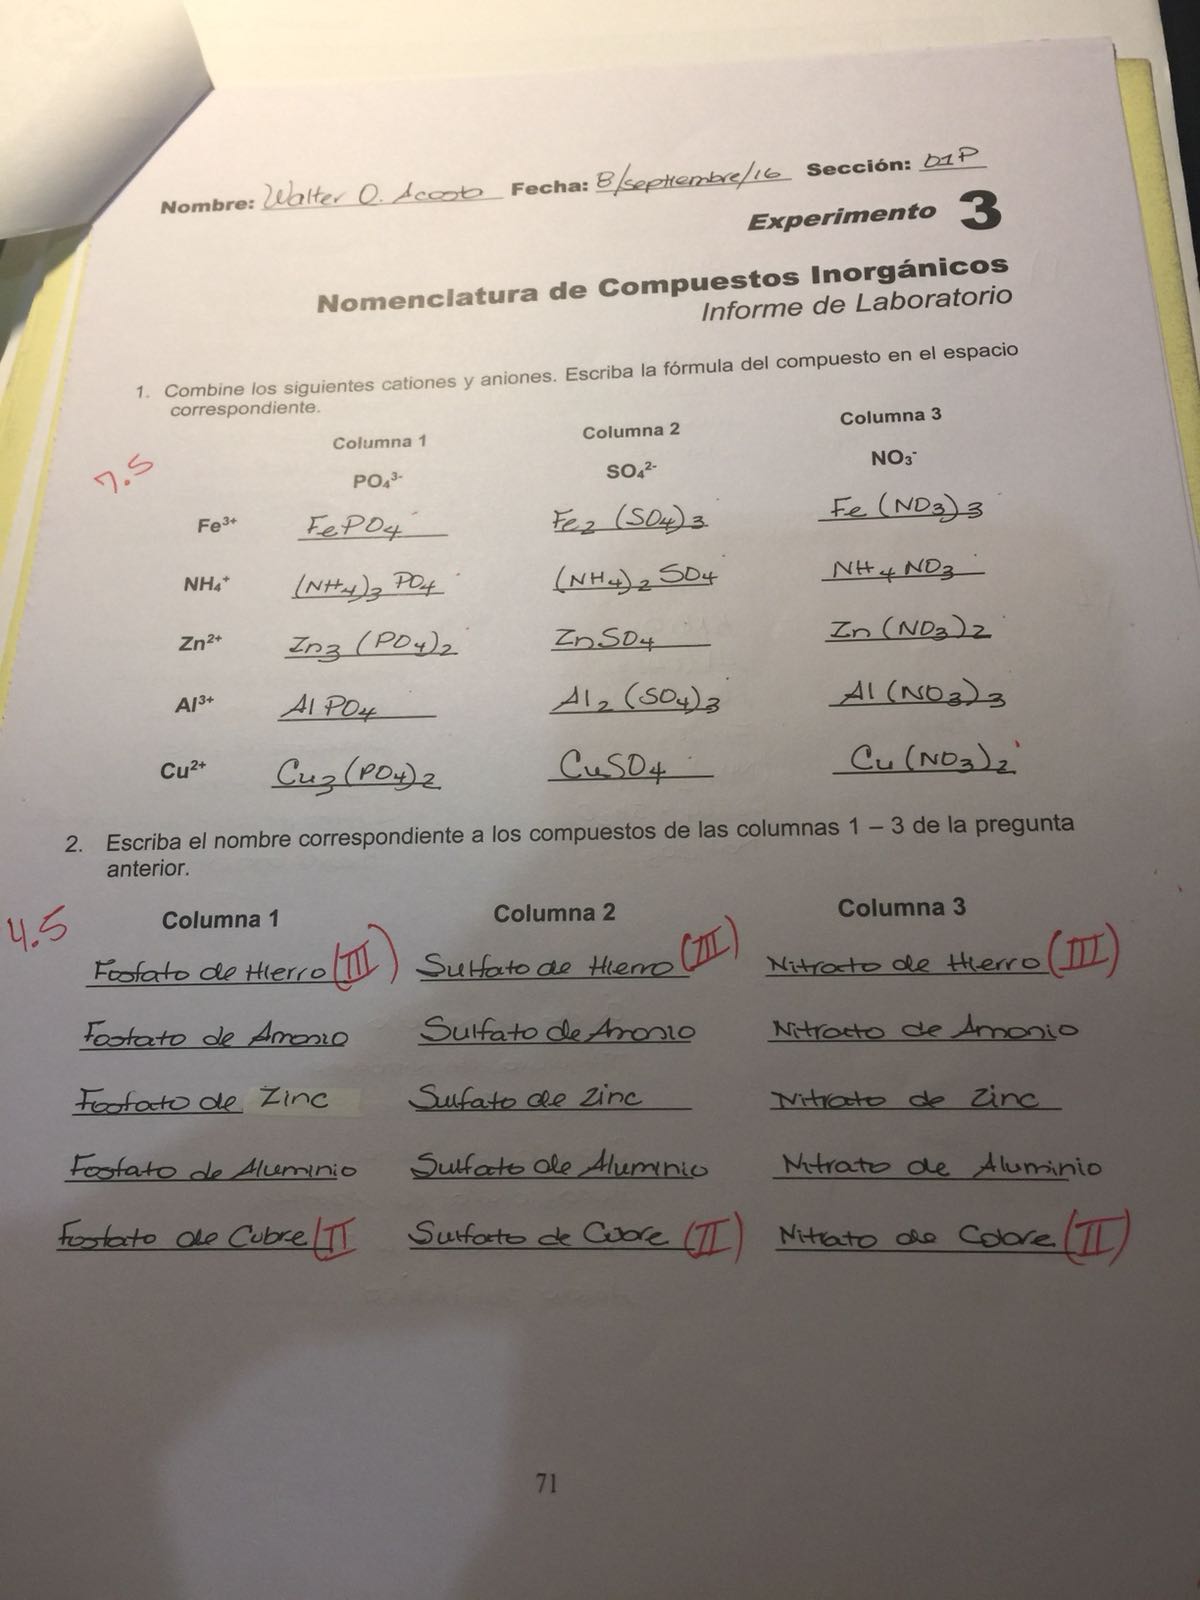 Nombre: Walter O. Acosta Fecha: 8/septiembre/16 Sección: D1P
Experimento 3
Nomenclatura de Compuestos Inorgánicos
Informe de Laboratorio
1. Combine los siguientes cationes y aniones. Escriba la fórmula del compuesto en el espacio
correspondiente.
Columna 1 Columna 2 Columna 3
7.5
PO₄³⁻ SO₄²⁻ NO₃⁻
Fe³⁺ FePO₄ Fe₂(SO₄)₃ Fe(NO₃)₃
NH₄⁺ (NH₄)₃PO₄ (NH₄)₂SO₄ NH₄NO₃
Zn²⁺ Zn₃(PO₄)₂ ZnSO₄ Zn(NO₃)₂
Al³⁺ AlPO₄ Al₂(SO₄)₃ Al(NO₃)₃
Cu²⁺ Cu₃(PO₄)₂ CuSO₄ Cu(NO₃)₂
2. Escriba el nombre correspondiente a los compuestos de las columnas 1 – 3 de la pregunta
anterior.
4.5 Columna 1 Columna 2 Columna 3
Fosfato de Hierro (III) Sulfato de Hierro (III) Nitrato de Hierro (III)
Fosfato de Amonio Sulfato de Amonio Nitrato de Amonio
Fosfato de Zinc Sulfato de Zinc Nitrato de Zinc
Fosfato de Aluminio Sulfato de Aluminio Nitrato de Aluminio
Fosfato de Cobre (II Sulfato de Cobre (II) Nitrato de Cobre (II)
71